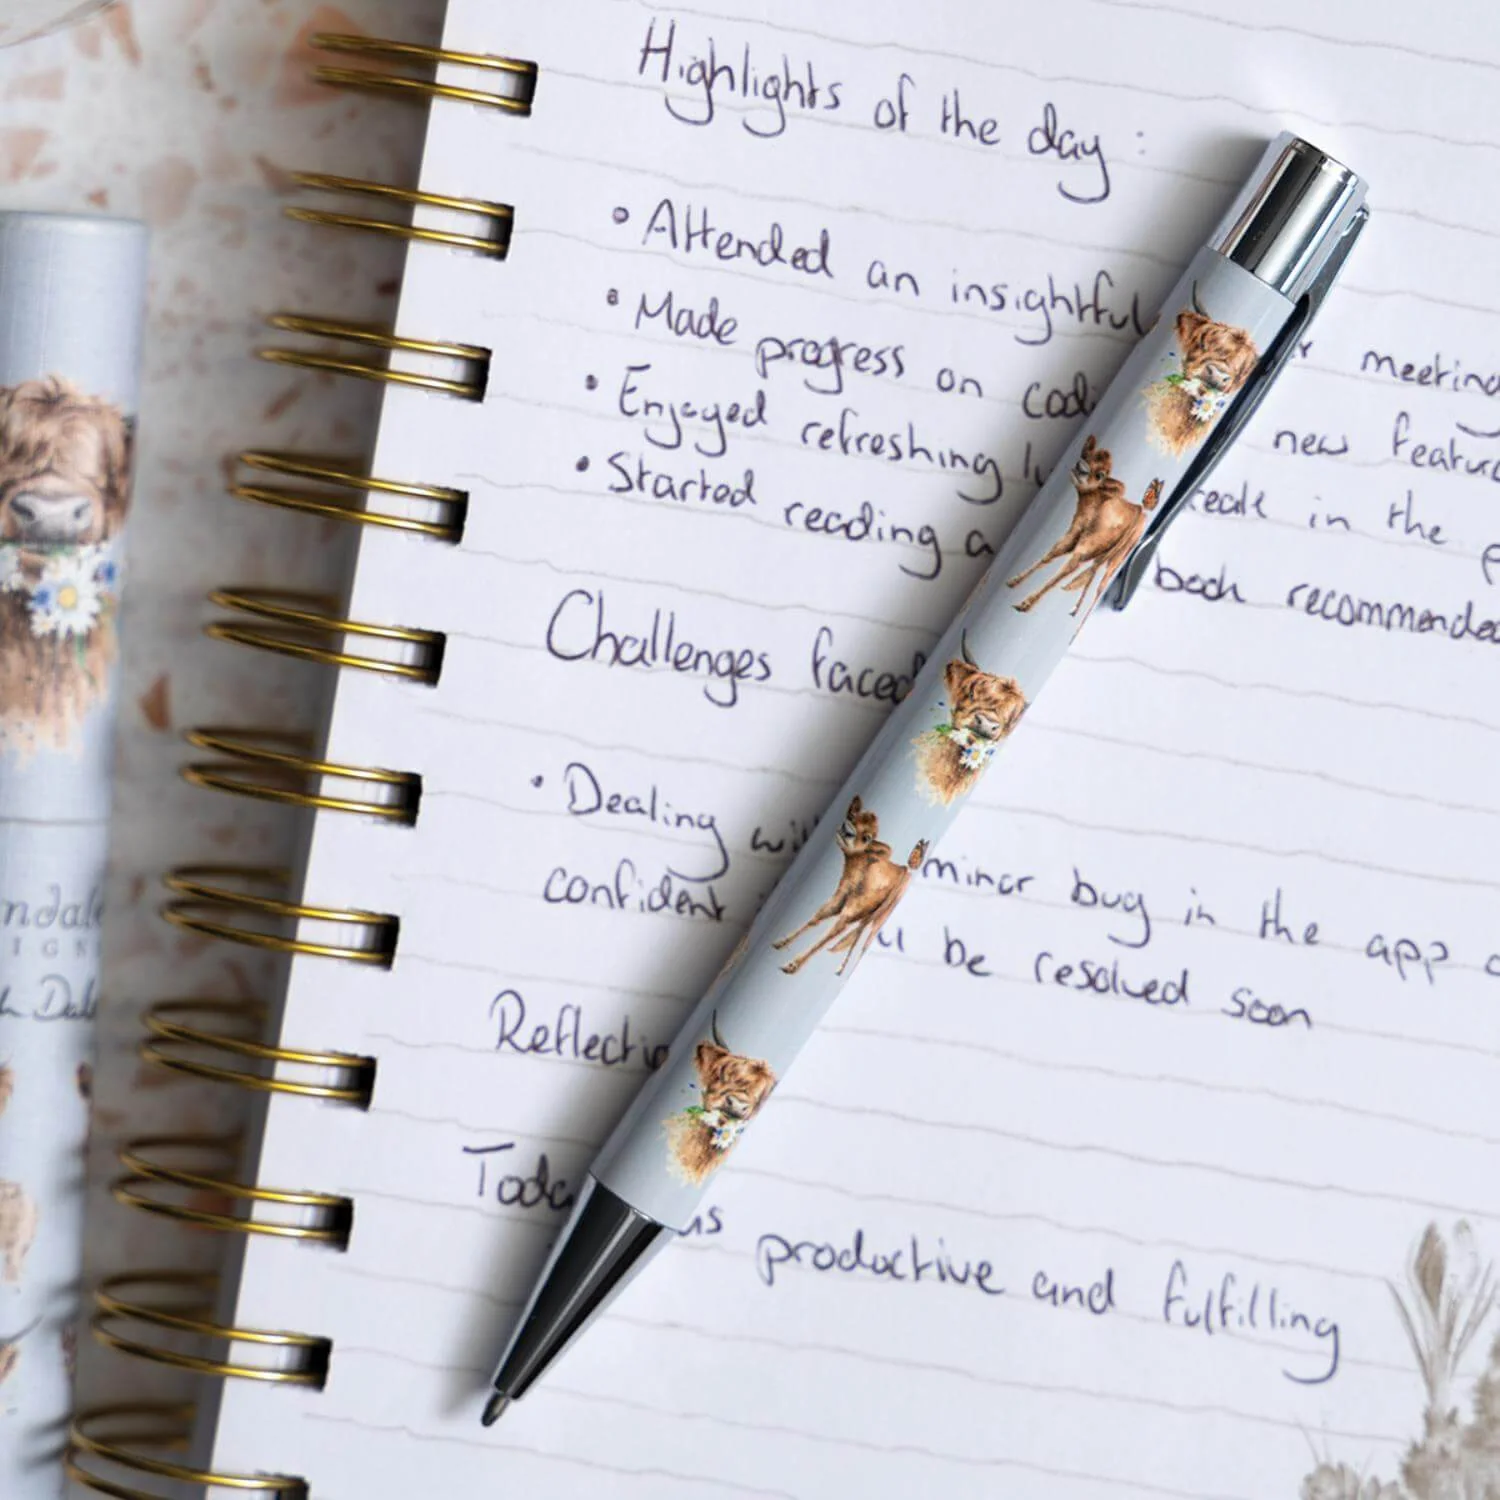 Highlights of the day :
• Attended an insightful meeting
• Made progress on new
• Enjoyed refreshing in the
• Started reading a book recommended
Challenges faced
• Dealing minor bug in the app
confident be resolved soon
Reflectio
Toda productive and fulfilling